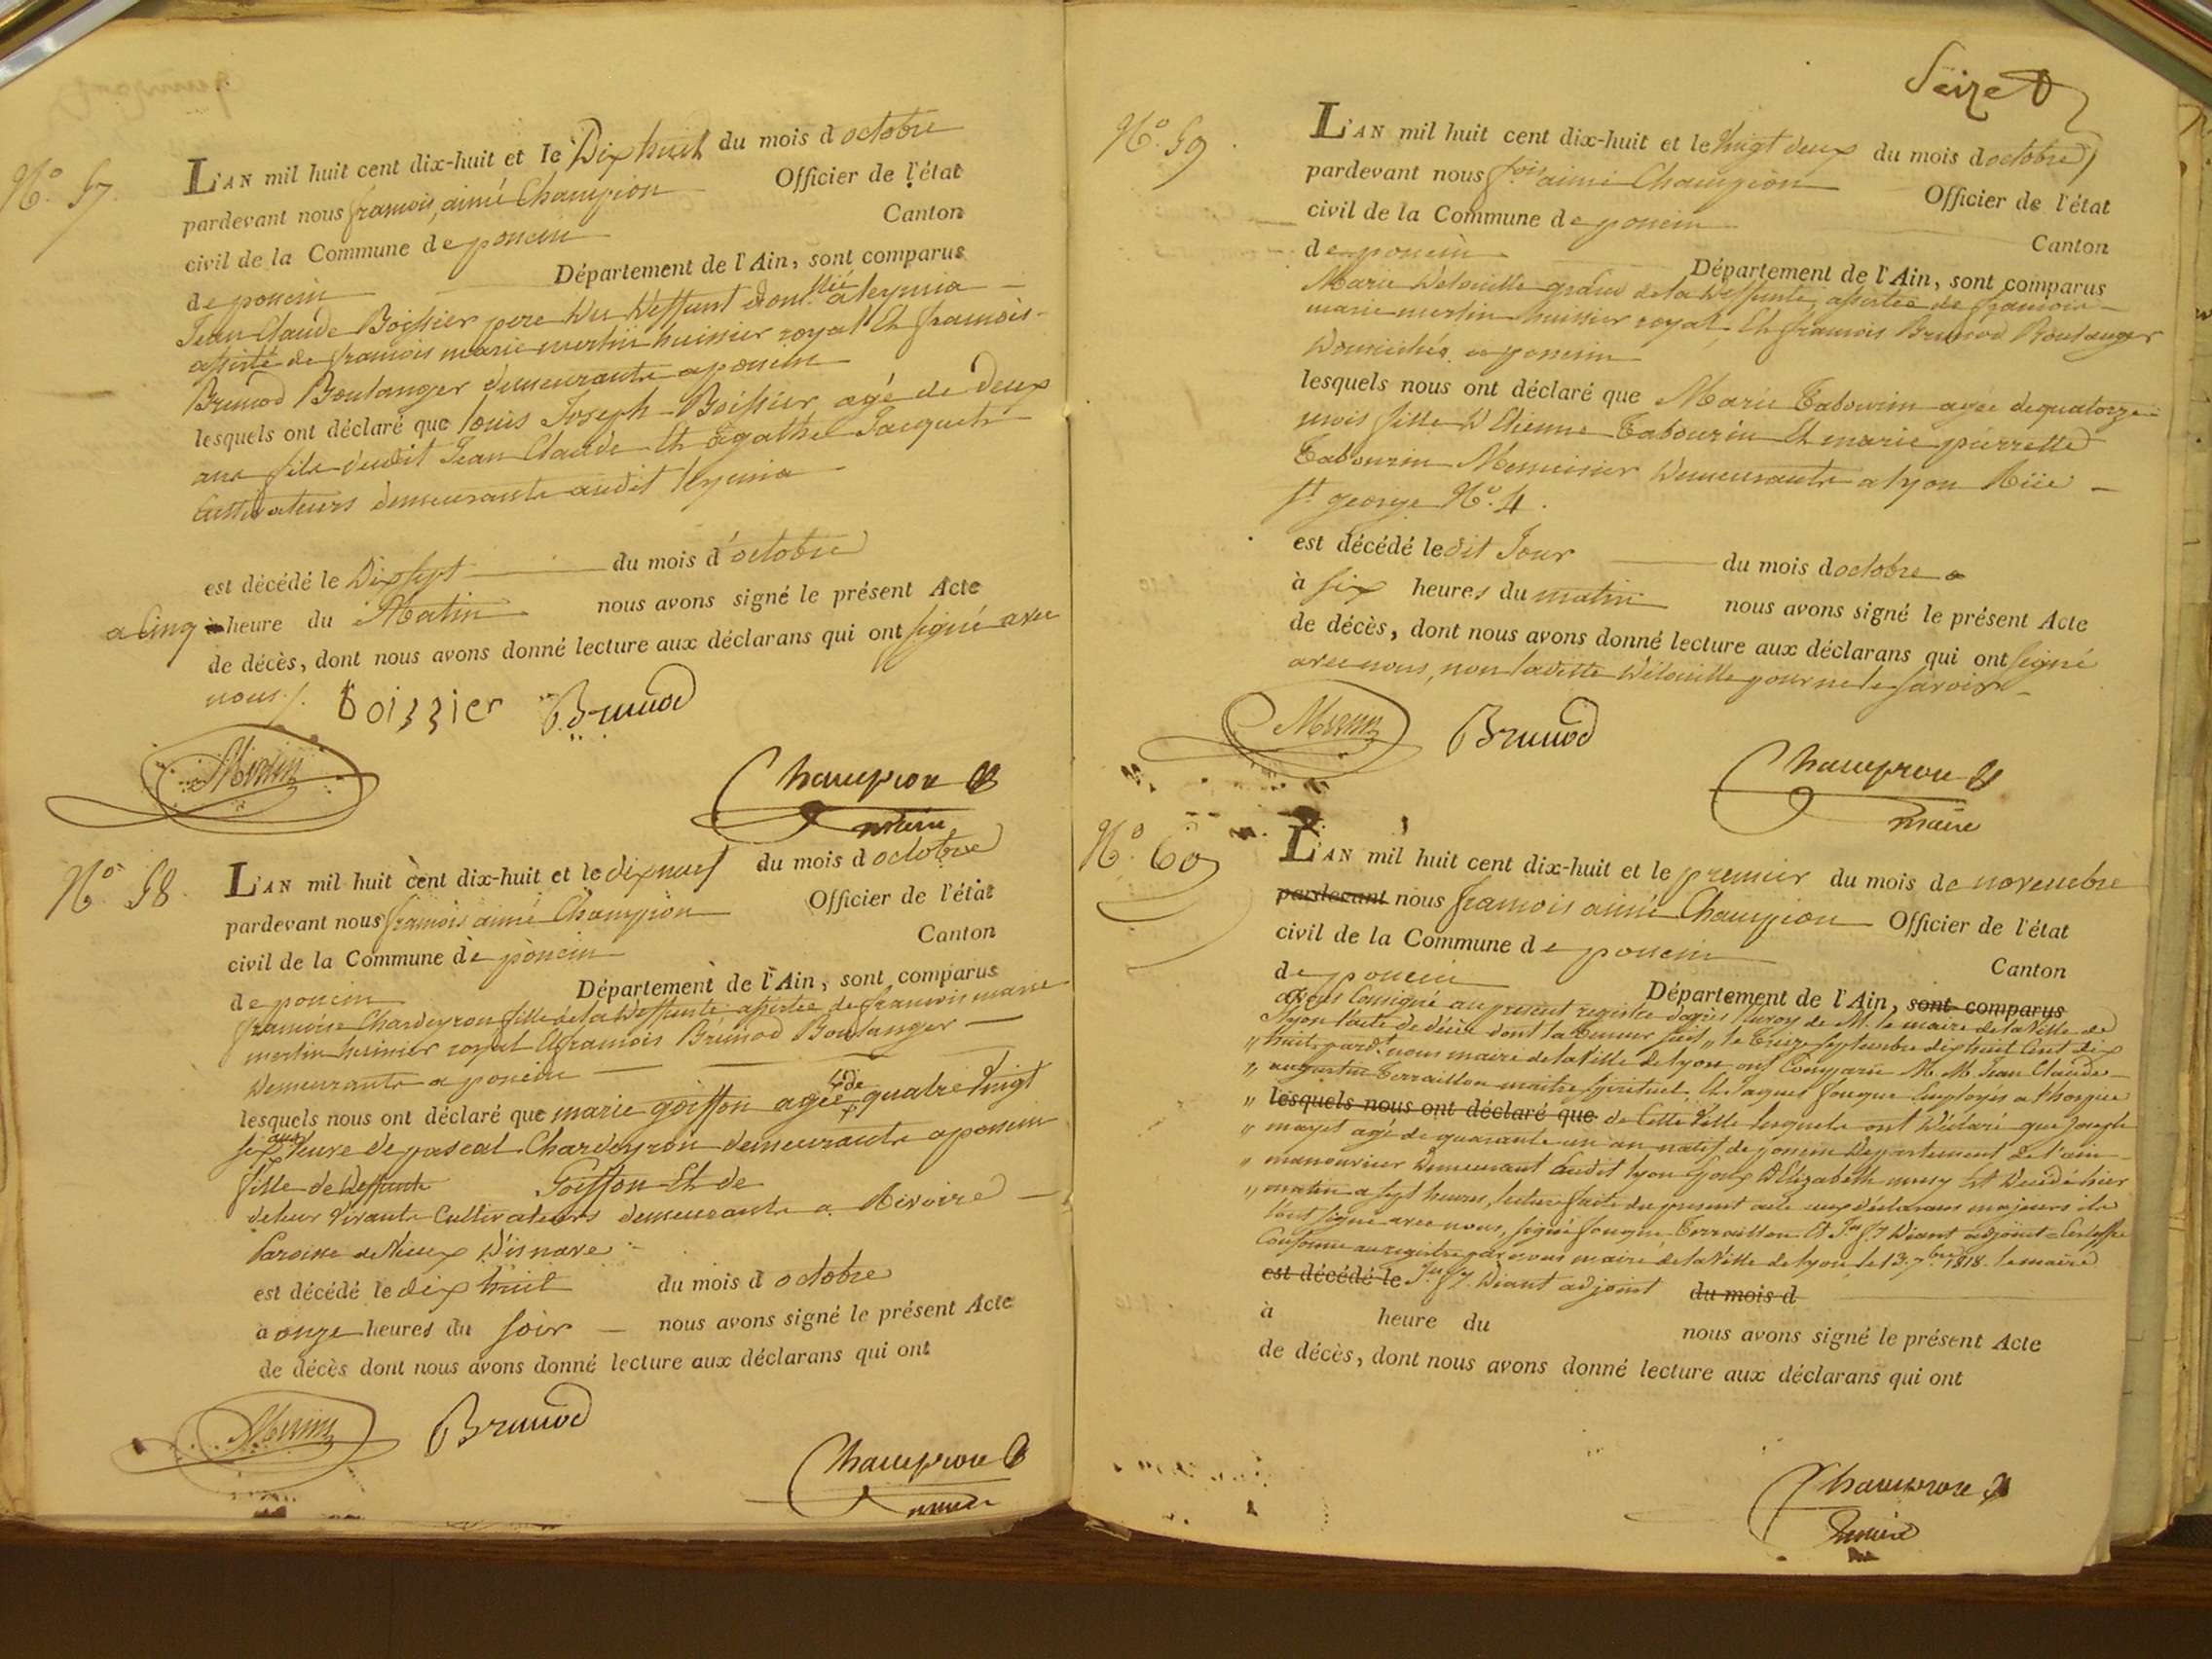 N.o 57.
L'AN mil huit cent dix-huit et le Dix huit du mois d octobre
pardevant nous francois, aimé Champion Officier de l'état
civil de la Commune de poncin Canton
de poncin Département de l'Ain, sont comparus
Jean Claude Boissier pere du deffunt a leymia
assisté de francois marie merlin huissier royal Et francois
Brunod Boulanger demeurants a poncin
lesquels ont déclaré que louis Joseph Boissier agé de deux
ans fils dudit Jean Claude Et agathe Jacquet
Cultivateurs demeurants audit leymia
est décédé le Dix sept du mois d'octobre
a Cinq heure du Matin nous avons signé le présent Acte
de décès, dont nous avons donné lecture aux déclarans qui ont signé avec
nous /.
boizzier Brunod
Merlin
Champion
maire
N.o 58.
L'AN mil huit cent dix-huit et le dix neuf du mois d octobre
pardevant nous francois aimé Champion Officier de l'état
civil de la Commune de poncin Canton
de poncin Département de l'Ain, sont comparus
francoise Chardeyron fille de la deffunte assistée de francois marie
merlin huissier royal Et francois Brunod Boulanger
demeurants a poncin
lesquels nous ont déclaré que marie goiffon agée de quatre vingt
six ans veuve de pascal Chardeyron demeurante a poncin
fille de deffunts Goiffon Et de
de leur vivants Cultivateurs demeurants a Rivoire
Paroisse de Vieux d'isnave
est décédé le dix huit du mois d octobre
à onze heures du soir nous avons signé le présent Acte
de décès dont nous avons donné lecture aux déclarans qui ont
Merlin Brunod
Champion
maire
Seize
N.o 59.
L'AN mil huit cent dix-huit et le vingt deux du mois d octobre
pardevant nous fois aimé Champion Officier de l'état
civil de la Commune de poncin Canton
de poncin Département de l'Ain, sont comparus
Marie Delouille de la deffunte, assistée de francois
marie merlin huissier royal, Et francois Brunod Boulanger
Domiciliés a poncin
lesquels nous ont déclaré que Marie Tabourin agée de quatorze
mois fille D Etienne Tabourin Et marie pierrette
Tabourin Menuisier demeurants a lyon Rüe
St george N.o 4.
est décédé le dit Jour du mois d octobre
à six heures du matin nous avons signé le présent Acte
de décès, dont nous avons donné lecture aux déclarans qui ont signé
avec nous, non ladite Délouille pour ne le savoir
Merlin Brunod
Champion
maire
N.o 60
L'AN mil huit cent dix-huit et le premier du mois de novembre
pardevant nous francois aimé Champion Officier de l'état
civil de la Commune de poncin Canton
de poncin Département de l'Ain, sont comparus
avons Consigné au present registre d'après l'envoy de M. le maire de la Ville de
lyon l'acte de décès dont la teneur suit, " le treize septembre dix huit Cent dix
" huit, pardt. nous maire de la ville de lyon ont Comparu M. M. Jean Claude
" augustin Terraillon maitre spirituel Et Jaques fouque Employés a l'hospice
" lesquels nous ont déclaré que de Cette Ville lesquels ont déclaré que Joseph
" mayet agé de quarante un an natif de poncin Departement de l'ain
" manouvrier demeurant audit lyon Epoux d'Elizabeth Est décédé hier
" matin a sept heures, lecture faite du present acte aux déclarans majeurs ils
l'ont signé avec nous, signé fouque Terraillon Et Diant adjoint
Conforme au registre par nous maire de la Ville de lyon le 13. 7.bre 1818. le maire
est décédé le Diant adjoint du mois d
à heure du nous avons signé le présent Acte
de décès, dont nous avons donné lecture aux déclarans qui ont
Champion
maire